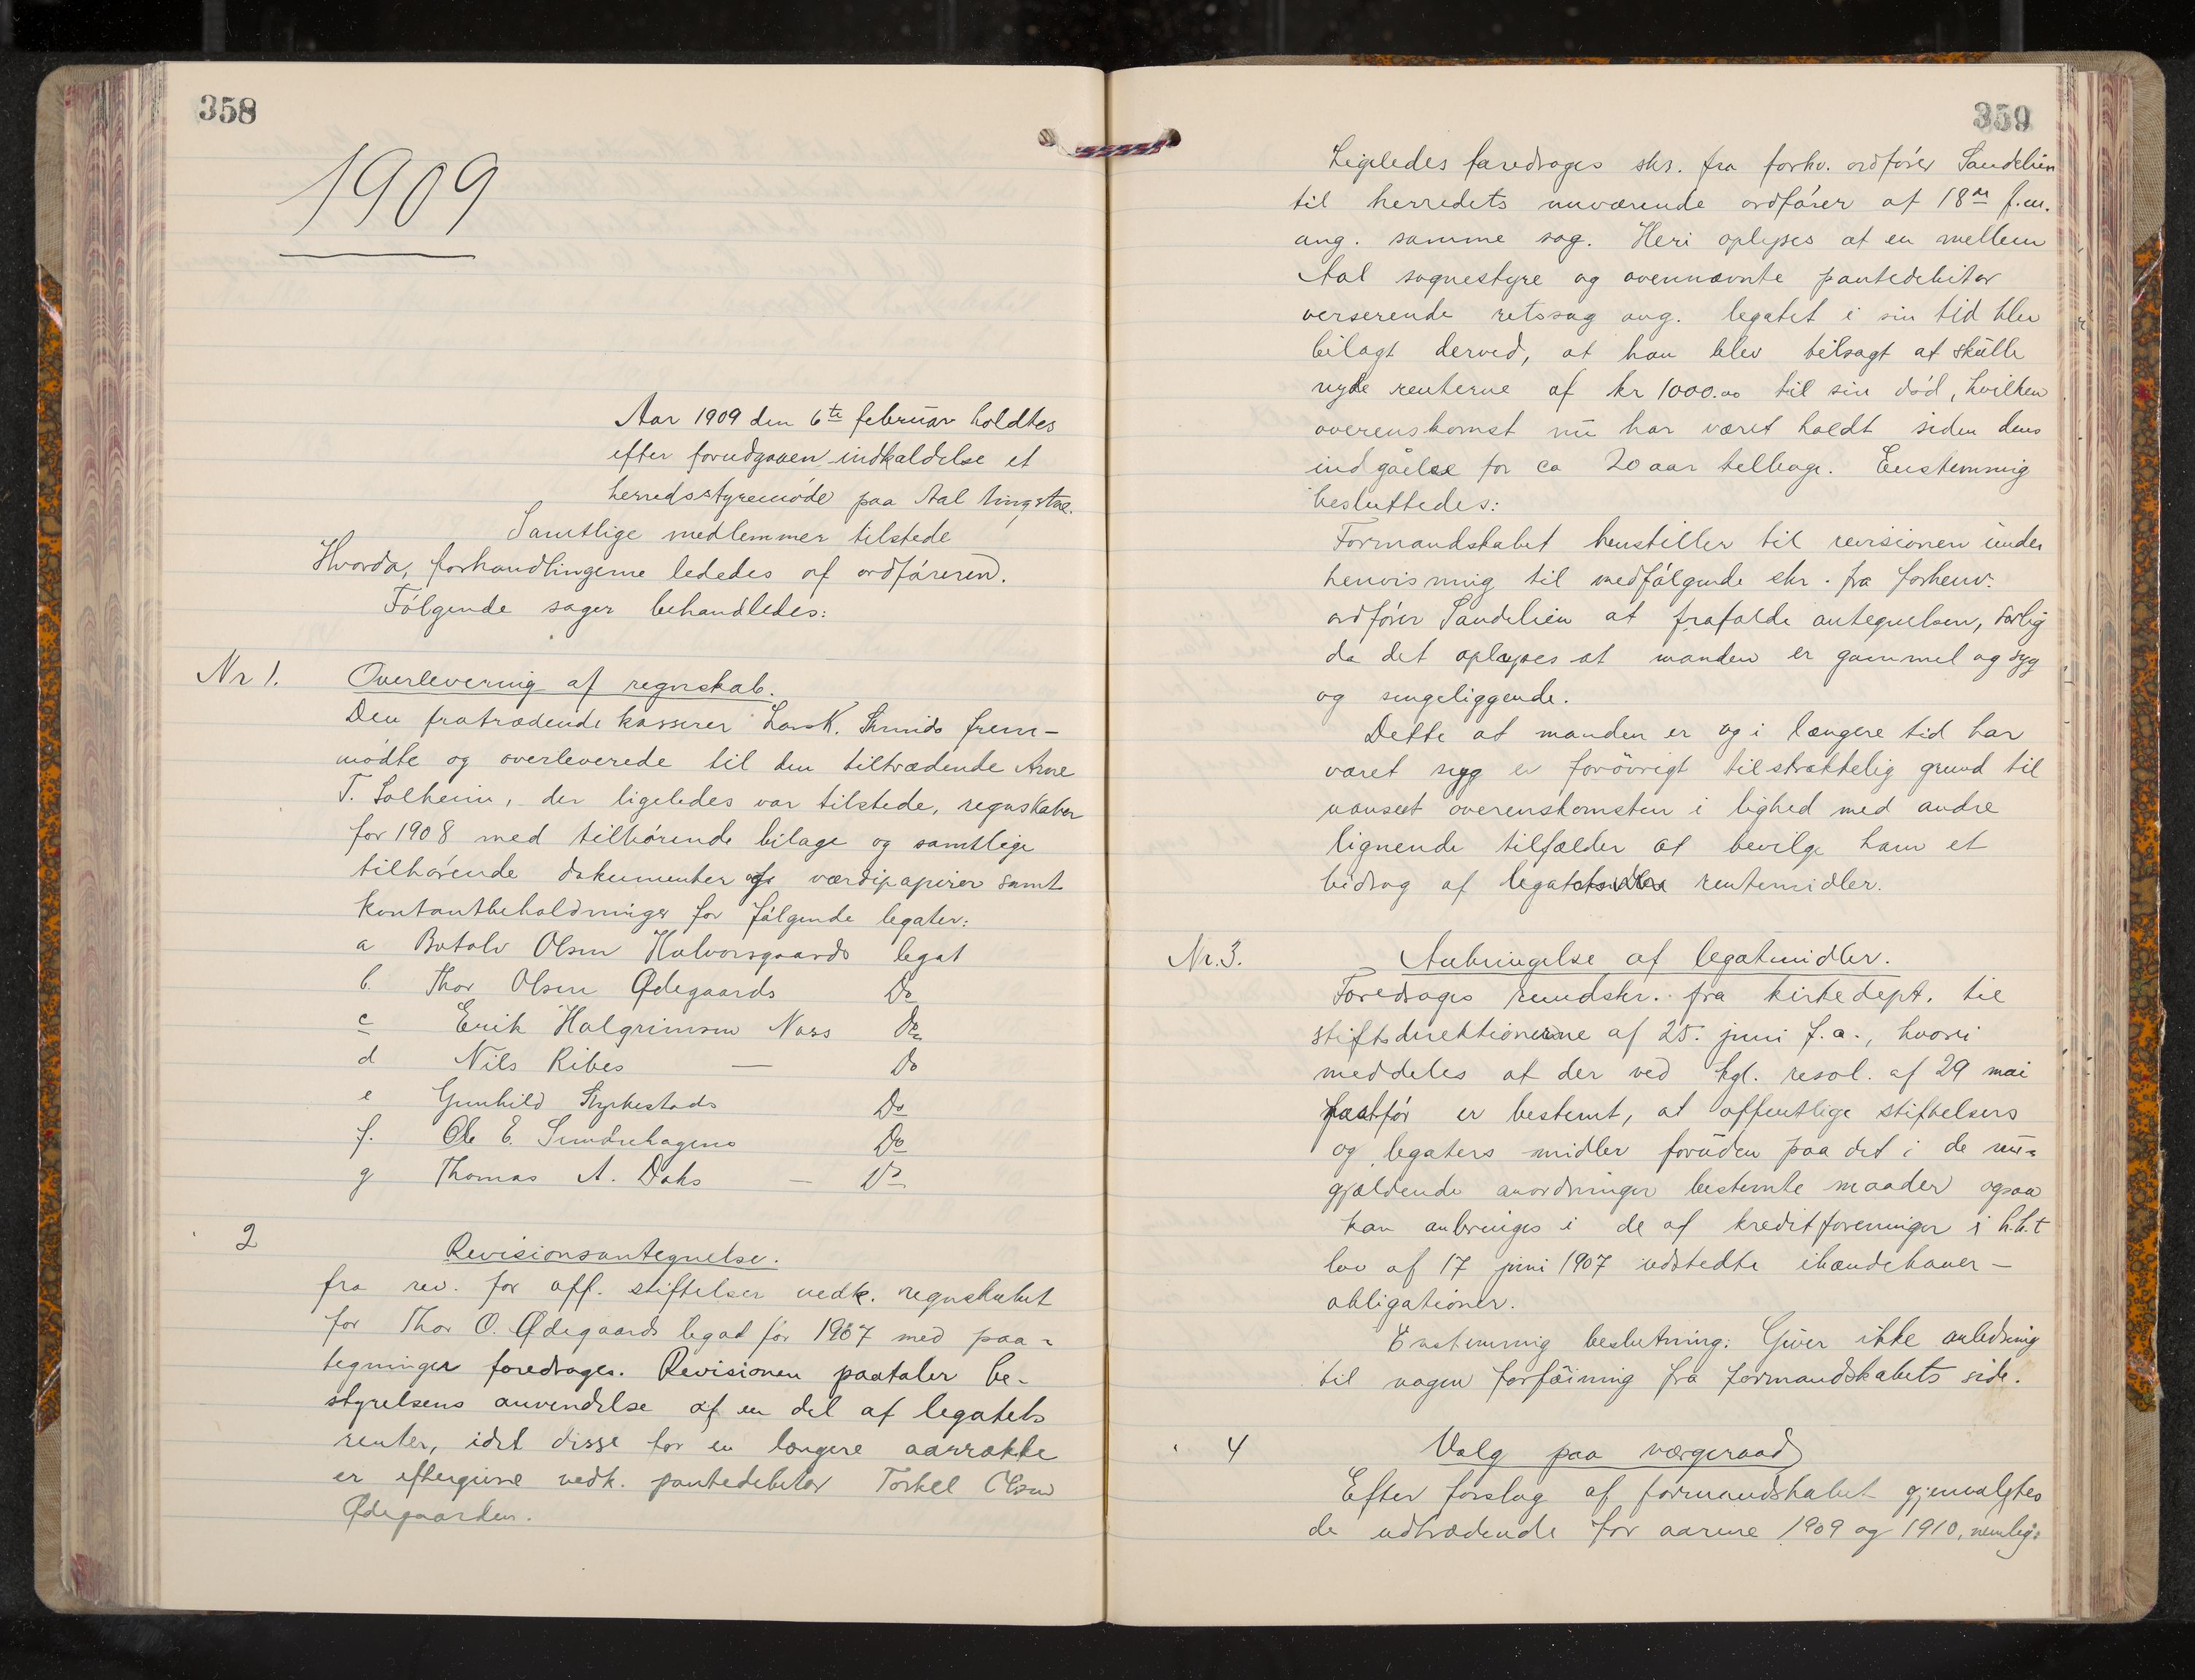 358
1909
Aar 1909 den 6te februar holdtes
efter forudgaaen indkaldelse et
herredsstyremøde paa Aal tingstue.
Samtlige medlemmer tilstede
Hvorda, forhandlingerne lededes af ordføreren.
Følgende sager behandledes:
Nr 1. Overlevering af regnskab.
Den fratrædende kasserer Lars K. frem-
mødte og overleverede til den tiltrædende Arne
T. Solheim, der ligeledes var tilstede, regnskaber
for 1908 med tilhørende bilage og samtlige
tilhørende dokumenter og værdipapirer samt
kontantbeholdninger for følgende legater:
a Botolv Olsen Halvorsgaards legat
b. Thor Olsen Ødegaards Do
c Erik Halgrimsen Næss Do
d Nils Ribes — Do
e Gunhild Do
f. Ole E. Sundrehagens Do
g Thomas A. Dahs — Do
2 Revisionsantegnelse.
fra rev. for off. stiftelser vedk. regnskabet
for Thor O. Ødegaards legat for 1907 med paa-
tegninger foredroges. Revisionen paataler be-
styrelsens anvendelse af en del af legatets
renter, idet disse for en længere aarrække
er eftergivne vedk. pantedebitor Torkel Olsen
Ødegaarden.
359
Ligeledes foredroges skr. fra forhv. ordfører Sandelien
til herredets nuværende ordfører af 18de f.m.
ang. samme sag. Heri oplyses at en mellem
Aal sognestyre og ovennævnte pantedebitor
verserende retssag ang. legatet i sin tid blev
bilagt derved, at han blev tilsagt at skulle
nyde renterne af kr 1000.00 til sin død, hvilken
overenskomst nu har været holdt siden dens
indgåelse for ca 20 aar tilbage. Enstemmig
besluttedes:
Formandskabet henstiller til revisionen under
henvisning til medfølgende skr. fra forhenv.
ordfører Sandelien at frafalde antegnelsen, særlig
da det oplyses at manden er gammel og syg
og sengeliggende.
Dette at manden er og i længere tid har
været syg er forøvrigt tilstrækkelig grund til
uanseet overenskomsten i lighed med andre
lignende tilfælder at bevilge ham et
bidrag af legatets rentemidler.
Nr. 3. Anbringelse af legatmidler.
Foredroges rundskr. fra kirkedept. til
stiftsdirektionerne af 25. juni f.a., hvori
meddeles at der ved kgl. resol. af 29 mai
næstfør er bestemt, at offentlige stiftelsers
og legaters midler foruden paa det i de nu-
gjældende anordninger bestemte maader ogsaa
kan anbringes i de af kreditforeninger i h.h.t
lov af 17 juni 1907 udstedte ihændehaver-
obligationer.
Enstemmig beslutning: Giver ikke anledning
til nogen forføining fra formandskabets side.
4 Valg paa vergeraad
Efter forslag af formandskabet gjenvalgtes
de udtrædende for aarene 1909 og 1910, nemlig: